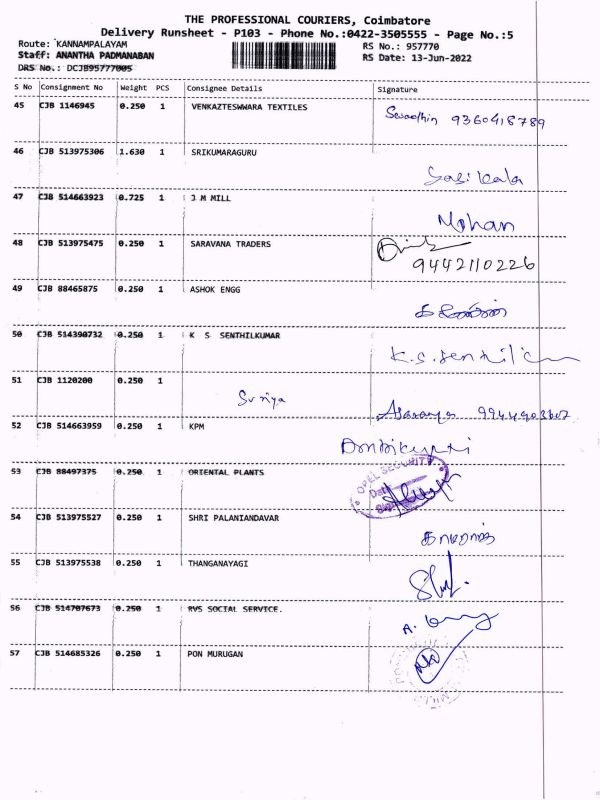 THE PROFESSIONAL COURIERS, Coimbatore
Delivery Runsheet - P103 - Phone No.:0422-3505555 - Page No.:5
Route: KANNAMPALAYAM RS No.: 957770
Staff: ANANTHA PADMANABAN RS Date: 13-Jun-2022
DRS No.: DCJB95777005
S No Consignment No Weight PCS Consignee Details Signature
45 CJB 1146945 0.250 1 VENKAZTESWWARA TEXTILES 9360418789
46 CJB 513975306 1.630 1 SRIKUMARAGURU
Sasikala
47 CJB 514663923 0.725 1 J M MILL
Mohan
48 CJB 513975475 0.250 1 SARAVANA TRADERS
9442110226
49 CJB 88465875 0.250 1 ASHOK ENGG
50 CJB 514390732 0.250 1 K S SENTHILKUMAR
K.S.Senthil
51 CJB 1120200 0.250 1
Suriya
52 CJB 514663959 0.250 1 KPM
53 CJB 88497375 0.250 1 ORIENTAL PLANTS
OPEL SECURITY
Date
54 CJB 513975527 0.250 1 SHRI PALANIANDAVAR
55 CJB 513975538 0.250 1 THANGANAYAGI
56 CJB 514707673 0.250 1 RVS SOCIAL SERVICE.
57 CJB 514685326 0.250 1 PON MURUGAN